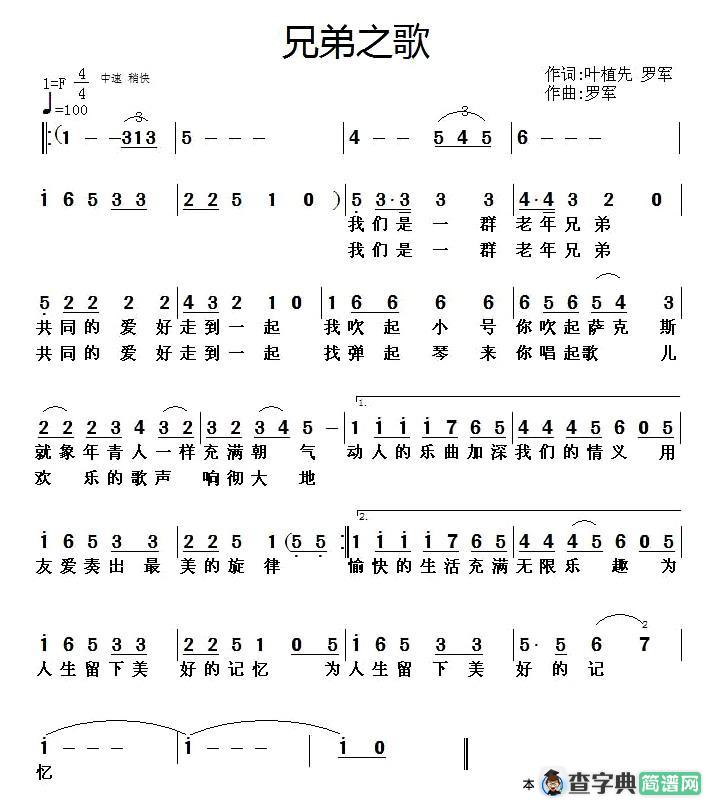 兄弟之歌
1=F 4/4 中速 稍快
♩=100
作词:叶植先 罗军
作曲:罗军
3 3
(1 - - 313 5 - - 4 - - 545 6 - -
i 6 5 3 3 2 2 5 1 0 ) 5 3·3 3 3 4·4 3 2 0
我们是一群老年兄弟
我们是一群老年兄弟
5 2 2 2 2 4 3 2 1 0 1 6 6 6 6 6 5 6 5 4 3
共同的爱好走到一起 我吹起小号你吹起萨克斯
共同的爱好走到一起 找弹起琴来你唱起歌儿
1.
2 2 2 3 4 3 2 3 2 2 3 4 5 - 1 i i i 7 6 5 4 4 4 5 6 0 5
就象年青人一样充满朝气 动人的乐曲加深我们的情义用
欢乐的歌声响彻大地
2.
i 6 5 3 3 2 2 5 1 (5 5 1 i i i 7 6 5 4 4 4 5 6 0 5
友爱奏出最美的旋律 愉快的生活充满无限乐趣为
2
i 6 5 3 3 2 2 5 1 0 5 i 6 5 3 3 5· 5 6 7
人生留下美好的记忆 为人生留下美好的记
i - - - i - - - i 0
忆
本
查字典简谱网